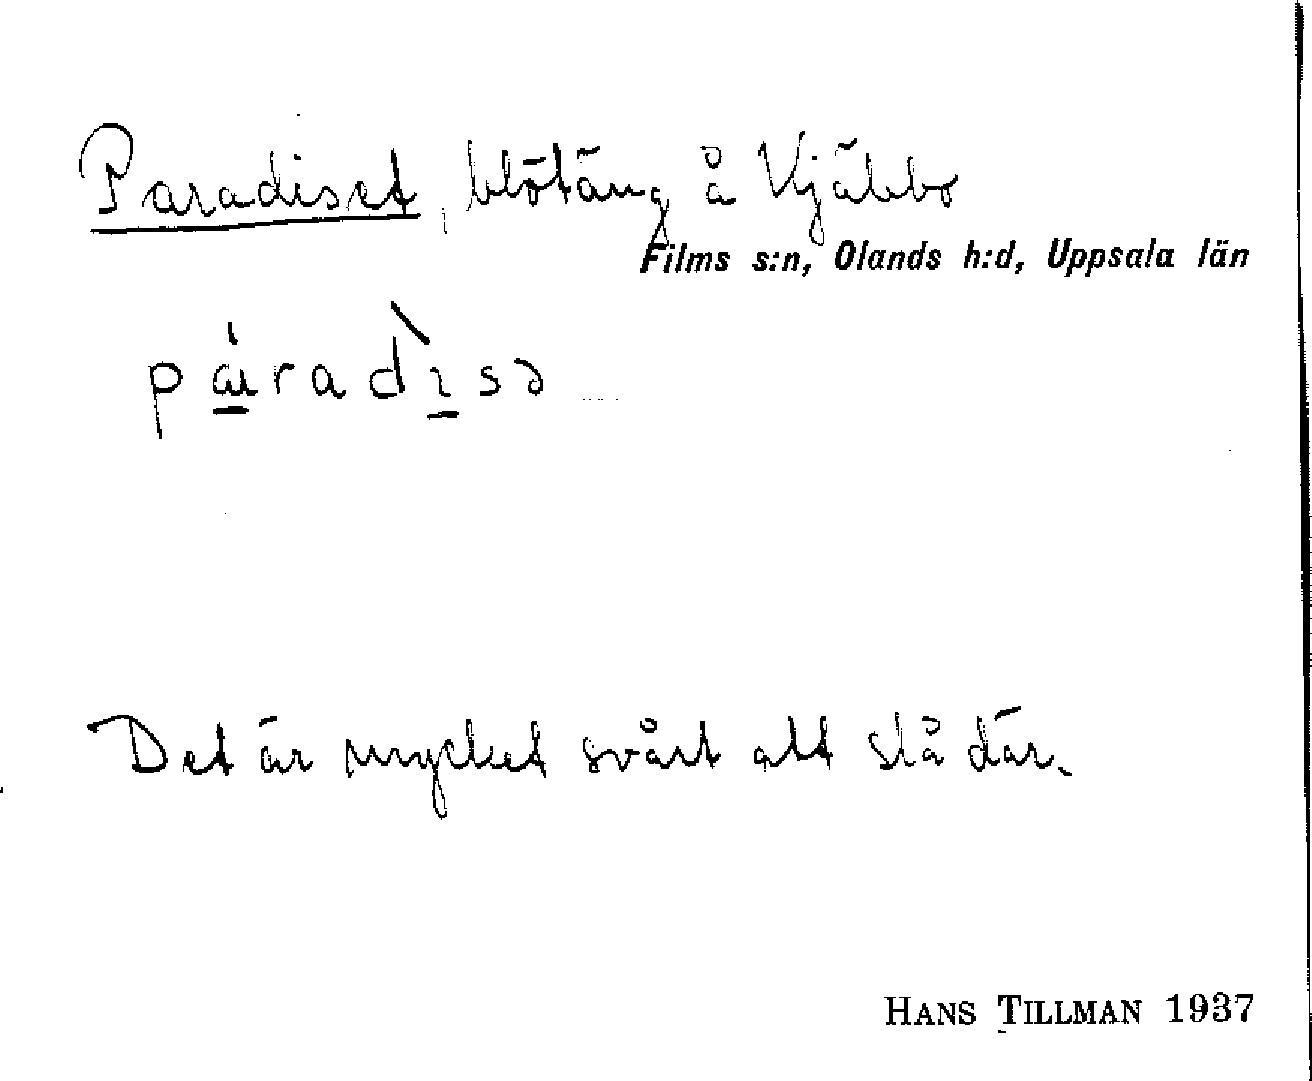 Paradiset, blötäng å Vjäbbo
Films s:n, Olands h:d, Uppsala län
páradìsə
Det är mycket svårt att slå där.
HANS TILLMAN 1937